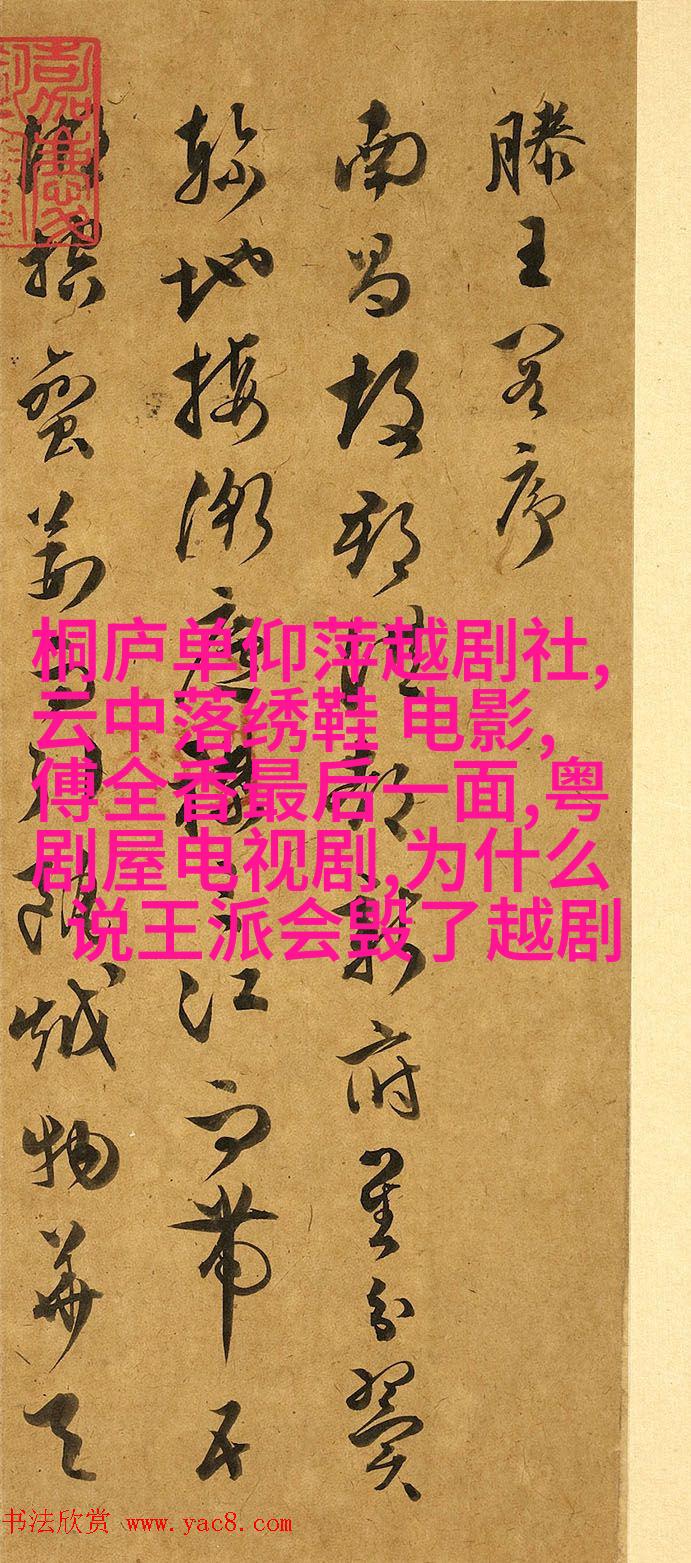 滕王閣序
南昌故郡洪都新府星分翼
軫地接衡廬襟三江而帶五
湖控蠻荊而引甌越物華天
桐庐单仰萍越剧社,
云中落绣鞋 电影,
傅全香最后一面,粤
剧屋电视剧,为什么
说王派会毁了越剧
书法欣赏 www.yac8.com